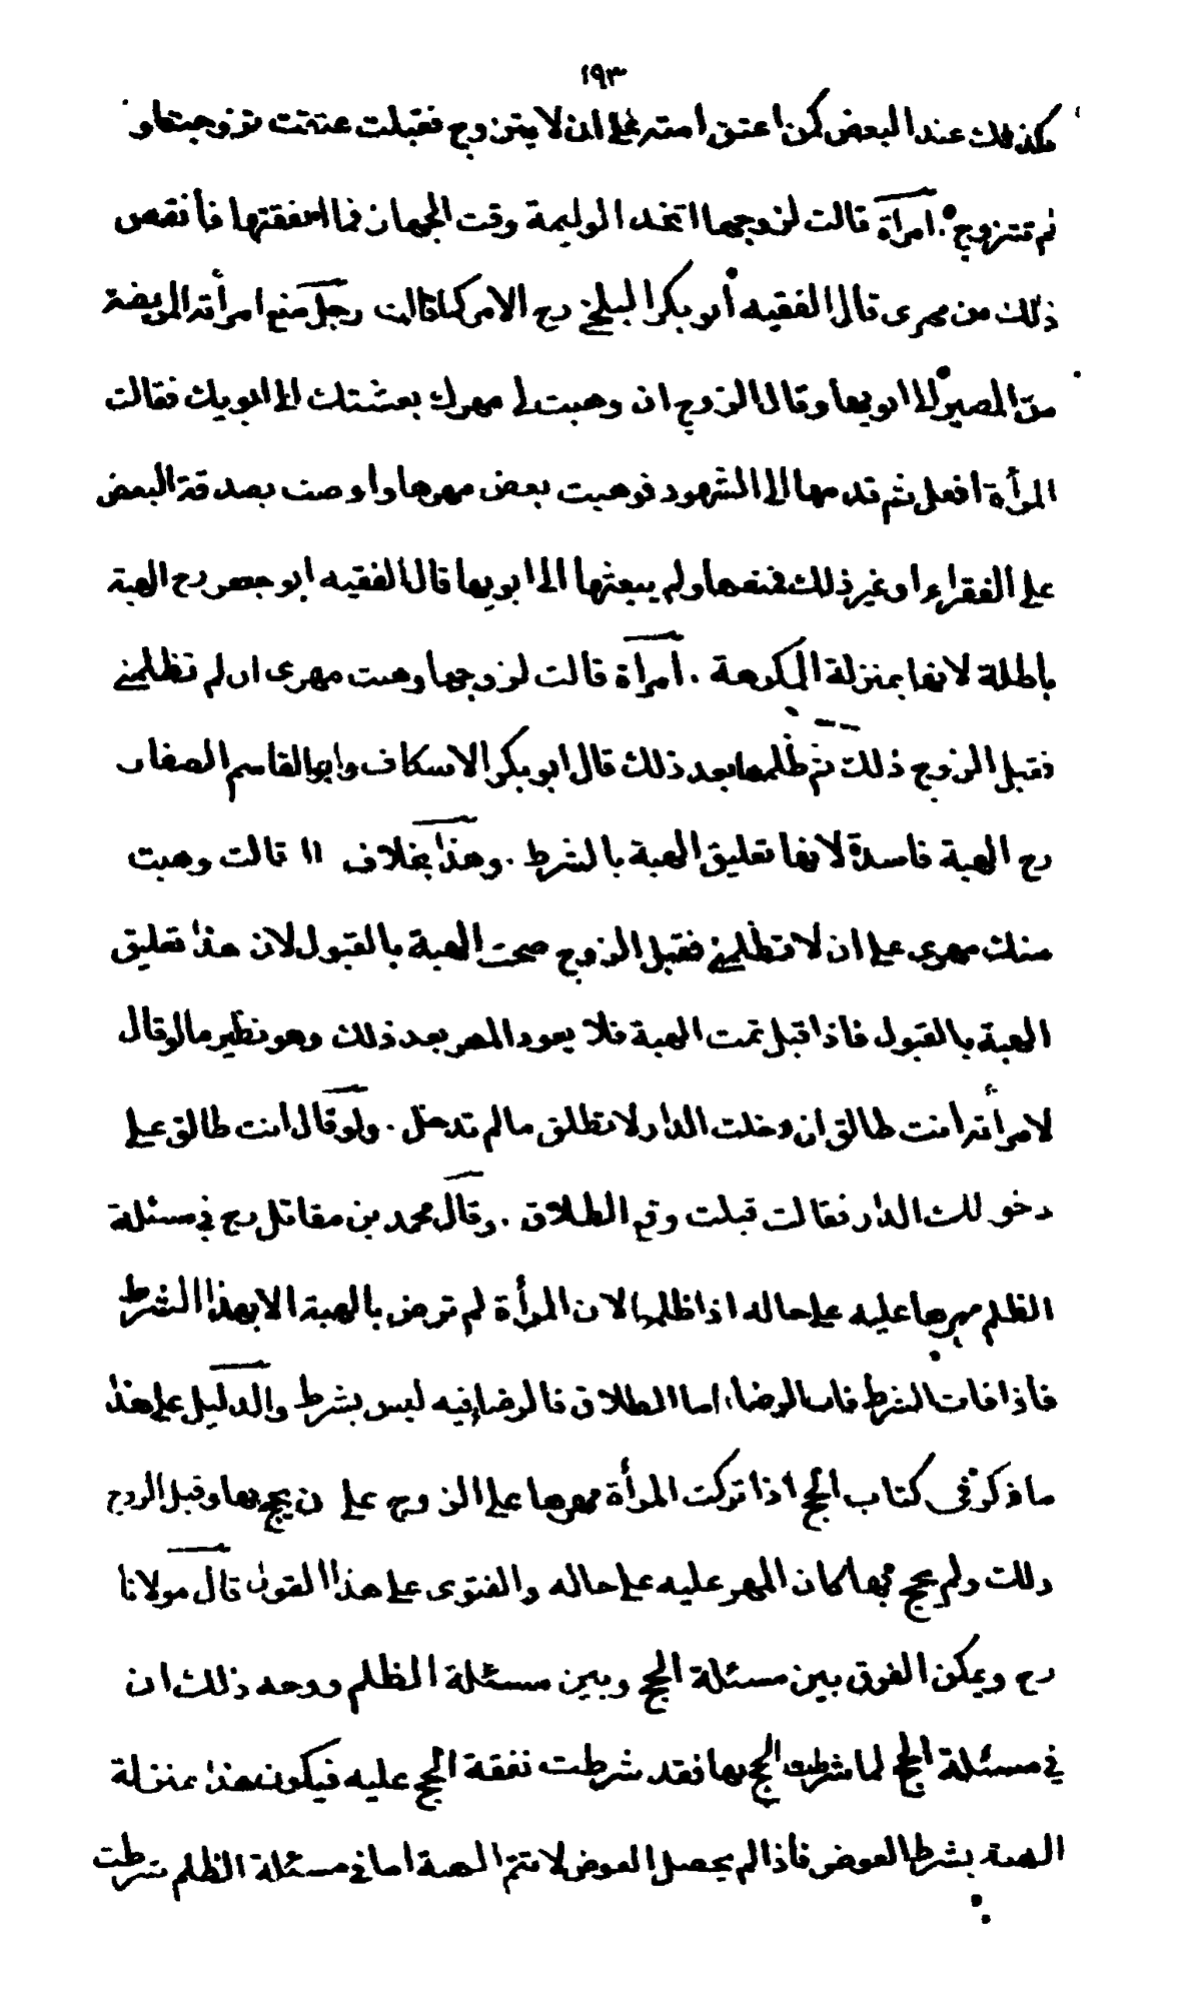 ١٩٣
وكذلك عند البعض كمن اعتق امته على ان لا يتزوج فقبلت عتقت تزوجت او
لم تتزوج . امرأة قالت لزوجها اتخذ الوليمة وقت الجهاز فما انفقتها فأنقص
ذلك من مهرى قال الفقيه أبو بكر البلخى رح الامر كما قالت رجل منع امرأته المريضة
من المصير الى ابويها وقال الزوج ان وهبت لى مهرك بعثتك الى ابويك فقالت
المرأة افعل ثم قدمها الى الشهود فوهبت بعض مهرها واوصت بصدقة البعض
على الفقراء او غير ذلك فمنعها ولم يبعثها الى ابويها قال الفقيه ابو جعفر رح الهبة
باطلة لانها بمنزلة المكرهة . امرأة قالت لزوجها وهبت مهرى ان لم تظلمنى
فقبل الزوج ذلك ثم ظلمها بعد ذلك قال ابو بكر الاسكاف وابو القاسم الصفار
رح الهبة فاسدة لانها تعليق الهبة بالشرط . وهذا بخلاف اا قالت وهبت
منك مهرى على ان لا تظلمنى فقبل الزوج صحت الهبة بالقبول لان هذا تعليق
الهبة بالقبول فاذا قبل تمت الهبة فلا يعود المهر بعد ذلك وهو نظير ما لو قال
لامرأته انت طالق ان دخلت الدار لا تطلق ما لم تدخل . ولو قال انت طالق على
دخولك الدار فقالت قبلت وقع الطلاق . وقال محمد بن مقاتل رح فى مسئلة
الظلم مهرها عليه على حاله اذا ظلمها لان المرأة لم ترض بالهبة الا بهذا الشرط
فاذا فات الشرط فات الرضا، اما الطلاق فالرضا فيه ليس بشرط والدليل على هذا
ما ذكر فى كتاب الحج اذا تركت المرأة مهرها على الزوج على ن يحج بها وقبل الزوج
ذلك ولم يحج بها كان المهر عليه على حاله والفتوى على هذا القول قال مولانا
رح ويمكن الفرق بين مسئلة الحج وبين مسئلة الظلم ووجه ذلك ان
فى مسئلة الحج لما شرطت الحج بها فقد شرطت نفقة الحج عليه فيكون هذا بمنزلة
الهبة بشرط العوض فاذا لم يحصل العوض لا تتم الهبة اما فى مسئلة الظلم شرطت